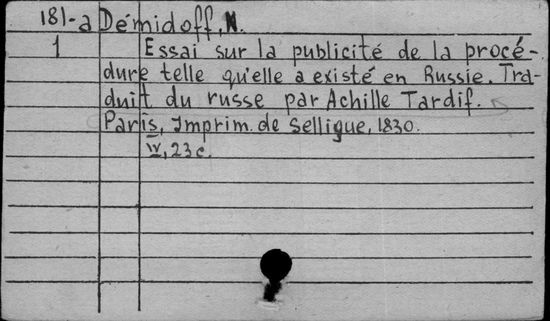 181-a Démidoff, N.
1 Essai sur la publicité de la procé-
dure telle qu'elle a existé en Russie. Tra-
duit du russe par Achille Tardif.
Paris, Imprim. de Selligue, 1830.
IV, 23 c.